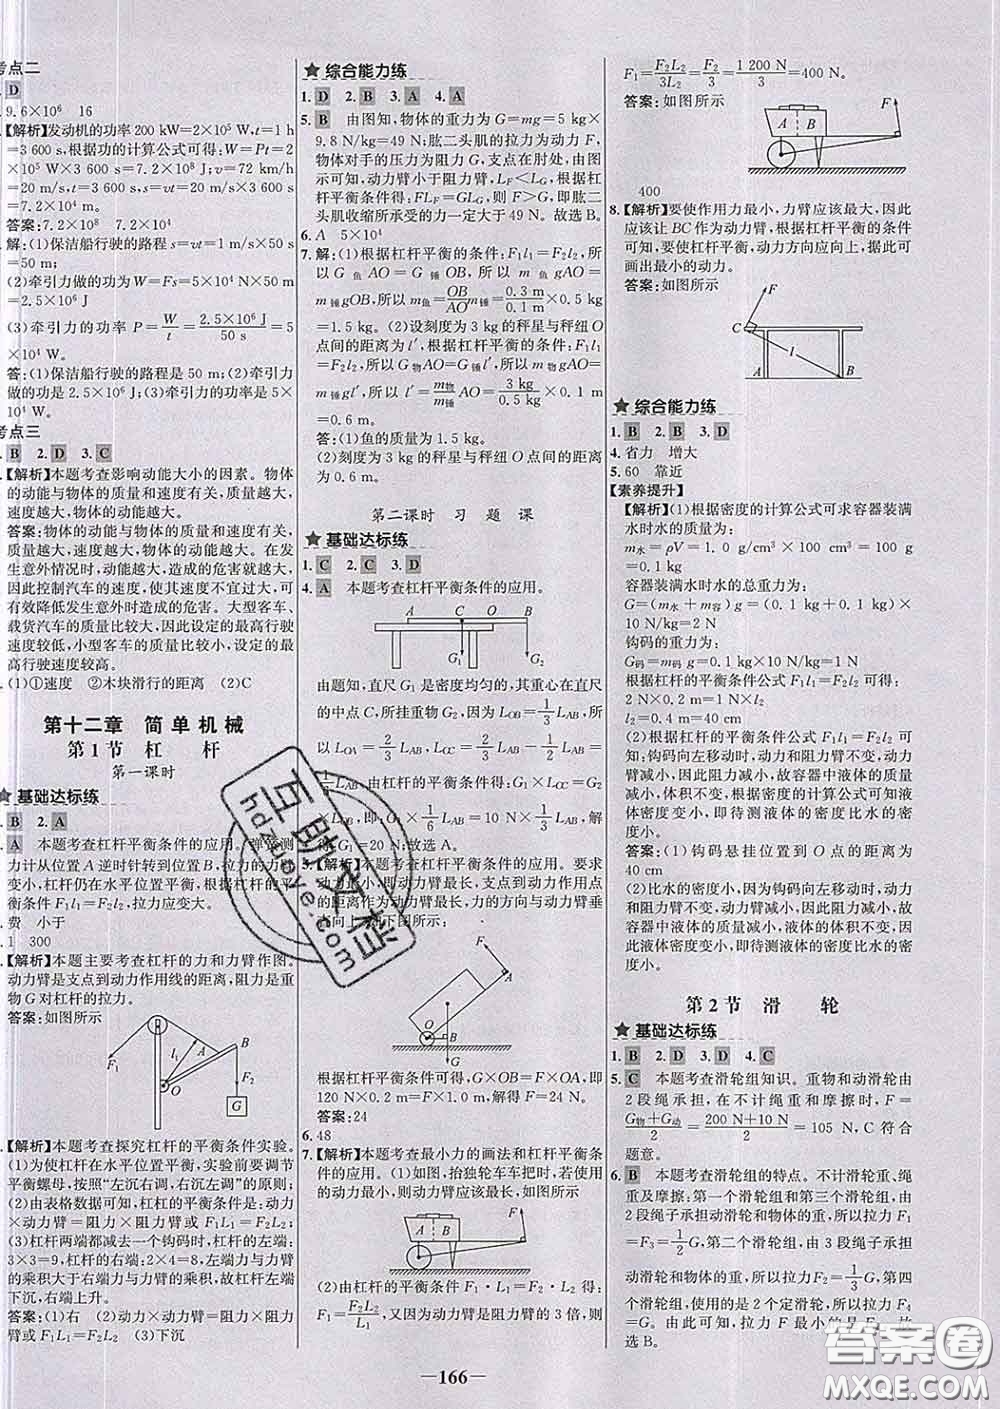 考点二
D
9.6×10⁶　16
【解析】发动机的功率 200 kW=2×10⁵ W,t=1 h
=3 600 s,根据功的计算公式可得:W=Pt=2
×10⁵ W×3 600 s=7.2×10⁸ J;v=72 km/h
=20 m/s,t=1 h=3 600 s,s=vt=20 m/s×3 600 s
=7.2×10⁴ m。
答案:7.2×10⁸　7.2×10⁴
解:(1)保洁船行驶的路程 s=vt=1 m/s×50 s
=50 m;
(2)牵引力做的功为 W=Fs=5×10⁴ N×50 m
=2.5×10⁶ J
(3)牵引力的功率 P=W/t=2.5×10⁶ J/50 s=5
×10⁴ W。
答:(1)保洁船行驶的路程是 50 m;(2)牵引力
做的功为 2.5×10⁶ J;(3)牵引力的功率是 5×
10⁴ W。
考点三
B　2. D　3. C
【解析】本题考查影响动能大小的因素。物体
的动能与物体的质量和速度有关,质量越大,
速度越大,物体的动能越大。
答案:物体的动能与物体的质量和速度有关,
质量越大,速度越大,物体的动能越大。在发
生意外情况时,动能越大,造成的危害就越大,
因此控制汽车的速度,使其动能不至于过大,
可有效降低发生意外时造成的危害。大型客车、
载货汽车的质量比较大,因此设定的最高行驶
速度较低,小型客车的质量较小,设定的最高
行驶速度较高。
(1)①速度　②木块滑行的距离　(2)C
第十二章　简单机械
第1节　杠　杆
第一课时
基础达标练
B　2. A
A　本题考查杠杆平衡条件的应用。弹簧测
力计从位置 A 逆时针转到位置 B,拉力的力臂
变小,杠杆仍在水平位置平衡,根据杠杆的平
衡条件 F₁l₁=F₂l₂,拉力应变大。
费　小于
1　300
【解析】本题主要考查杠杆的力和力臂作图。
动力臂是支点到动力作用线的距离,阻力是重
物 G 对杠杆的拉力。
答案:如图所示
B
l₁
A
F₁
O
F₂
G
【解析】本题考查探究杠杆的平衡条件实验。
(1)为使杠杆在水平位置平衡,实验前要调节
平衡螺母,按照“左沉右调,右沉左调”的原则;
(2)由表格数据可知,杠杆的平衡条件是:动力
×动力臂=阻力×阻力臂或 F₁L₁=F₂L₂;
(3)杠杆两端都减去一个钩码时,杠杆的左端:
3×3=9,杠杆的右端:2×4=8,左端力与力臂
的乘积大于右端力与力臂的乘积,故杠杆左端
下沉,右端上升。
答案:(1)右　(2)动力×动力臂=阻力×阻力
臂或 F₁L₁=F₂L₂　(3)下沉
综合能力练
1. D　2. B　3. A　4. A
5. B　由图知,物体的重力为 G=mg=5 kg×
9.8 N/kg=49 N;肱二头肌的拉力为动力 F,
物体对手的压力为阻力 G,支点在肘处,由图
示可知,动力臂小于阻力臂,L_F<L_G,根据杠
杆平衡条件得:FL_F=GL_G,则 F>G,即肱二
头肌收缩所承受的力一定大于 49 N。故选 B。
6. A　5×10⁴
7. 解:(1)根据杠杆平衡的条件:F₁l₁=F₂l₂,所
以 G鱼AO=G锤OB,所以 m鱼gAO=
m锤gOB,所以 m鱼=OB/AO m锤=0.3 m/0.1 m×0.5 kg
=1.5 kg。(2)设刻度为 3 kg 的秤星与秤纽 O
点间的距离为 l′,根据杠杆平衡的条件:F₁l₁
=F₂l₂,所以 G物AO=G锤l′,所以 m物gAO=
m锤gl′,所以 l′=m物/m锤AO=3 kg/0.5 kg×0.1 m
=0.6 m。
答:(1)鱼的质量为 1.5 kg。
(2)刻度为 3 kg 的秤星与秤纽 O 点间的距离
为 0.6 m。
第二课时　习题课
基础达标练
1. C　2. C　3. D
4. A　本题考查杠杆平衡条件的应用。
A　C　O　B
G₁　G₂
由题知,直尺 G₁ 是密度均匀的,其重心在直尺
的中点 C,所挂重物 G₂,因为 L_OB=1/3L_AB,所
以 L_OA=2/3L_AB,L_CO=2/3L_AB−1/2L_AB=
1/6L_AB。由杠杆的平衡条件得:G₁×L_CO=G₂
×L_OB,即:G₁×1/6L_AB=10 N×1/3L_AB,解
得:G₁=20 N;故选 A。
5.【解析】本题考查杠杆平衡条件的应用。要求
动力最小,即动力臂最长,支点到动力作用点
的距离作为动力臂最长,力的方向与动力臂垂
直向上,如下图所示:
F
A
O
B
G
根据杠杆平衡条件可得:G×OB=F×OA,即
120 N×0.2 m=F×1.0 m,解得 F=24 N。
答案:24
6. 48
7.【解析】本题考查最小力的画法和杠杆平衡条
件的应用。(1)如图,抬独轮车车把时,若使用
的动力最小,则动力臂应该最长,如图所示
A　B　F
(2)由杠杆的平衡条件 F₁·L₁=F₂·L₂ 得:
F₁=F₂L₂/L₁,又因为动力臂是阻力臂的 3 倍,则
F₁=F₂L₂/3L₂=F₂/3=1 200 N/3=400 N。
答案:如图所示
A　B　F
400
8.【解析】要使作用力最小,力臂应该最大,因此
应该让 BC 作为动力臂,根据杠杆平衡的条件
可知,要使杠杆平衡,动力方向应向上,据此可
画出最小的动力。
答案:如图所示
F
C
l
A　B
综合能力练
1. B　2. B　3. D
4. 省力　增大
5. 60　靠近
【素养提升】
【解析】(1)根据密度的计算公式可求容器装满
水时水的质量为:
m水=ρV=1.0 g/cm³×100 cm³=100 g
=0.1 kg
容器装满水时水的总重力为:
G=(m水+m容)g=(0.1 kg+0.1 kg)×
10 N/kg=2 N
钩码的重力为:
G码=m码g=0.1 kg×10 N/kg=1 N
根据杠杆的平衡条件公式 F₁l₁=F₂l₂ 可得:
2 N×0.2 m=1 N×l₂
l₂=0.4 m=40 cm
(2)根据杠杆的平衡条件公式 F₁l₁=F₂l₂ 可知:
钩码向左移动时,动力和阻力臂不变,动力臂
减小,因此阻力减小,故容器中液体的质量减
小,体积不变,根据密度的计算公式可知液
体密度变小,即待测液体的密度比水的密度
小。
答案:(1)钩码悬挂位置到 O 点的距离为
40 cm
(2)比水的密度小,因为钩码向左移动时,动力
和阻力臂不变,动力臂减小,因此阻力减小,故
容器中液体的质量减小,液体的体积不变,因
此液体密度变小,即待测液体的密度比水的密
度小。
第2节　滑　轮
基础达标练
1. B　2. D　3. D　4. C
5. C　本题考查滑轮组知识。重物和动滑轮由
2 段绳承担,在不计绳重和摩擦时,F=
G物+G动/2=200 N+10 N/2=105 N,C 符合
题意。
6. B　本题考查滑轮组的特点。不计滑轮重、绳
重及摩擦:第一个滑轮组和第三个滑轮组,由
2 段绳子承担动滑轮和物体的重,所以拉力 F₁
=F₃=1/2G;第二个滑轮组,由 3 段绳子承担
动滑轮和物体的重,所以拉力 F₂=1/3G,第四
个滑轮组,使用的是 2 个定滑轮,所以拉力 F₄
=G。由此可知,拉力 F 最小的是 F₂。故
选 B。
—166—
互助文档
hdzuoye.com
答案圈
MXQE.COM